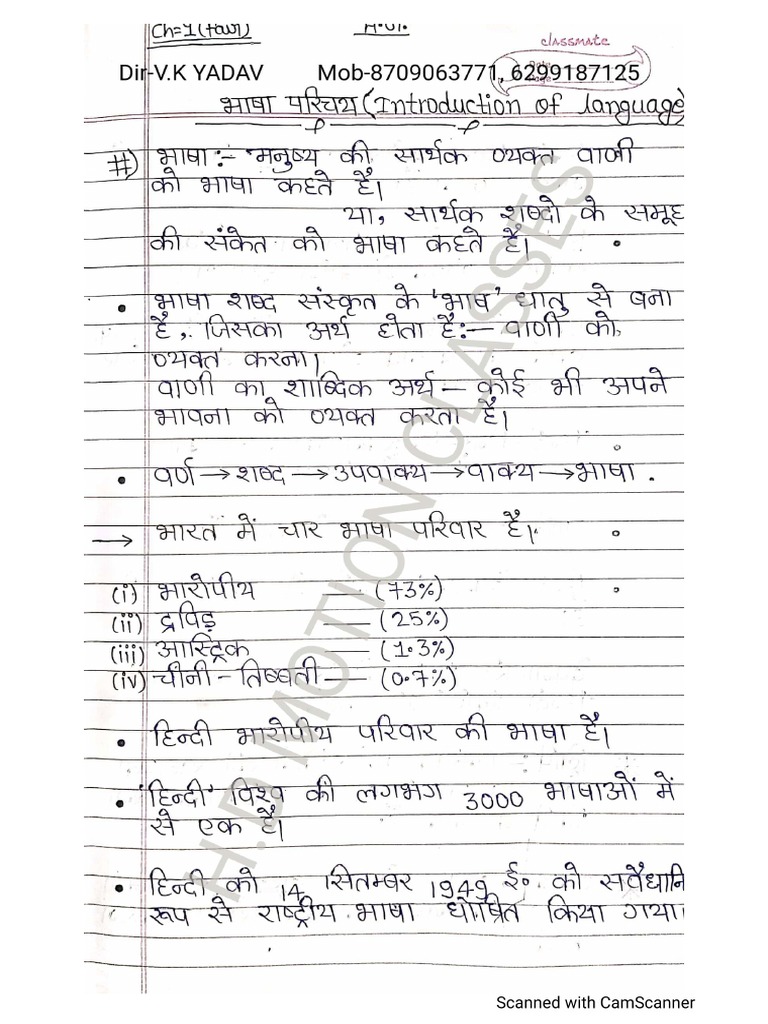 Ch=1(fair) H.01.
classmate
Date
Page
Dir-V.K YADAV Mob-8709063771, 6299187125
भाषा परिचय (Introduction of language)
#) भाषा:- मनुष्य की सार्थक व्यक्त वाणी
को भाषा कहते हैं।
या, सार्थक शब्दो के समूह
की संकेत को भाषा कहते है।
• भाषा शब्द संस्कृत के 'भाष' धातु से बना
है, जिसका अर्थ होता है:— वाणी को
व्यक्त करना।
वाणी का शाब्दिक अर्थ — कोई भी अपने
भावना को व्यक्त करता है।
• वर्ण → शब्द → उपवाक्य → वाक्य → भाषा.
→ भारत में चार भाषा परिवार है।
(i) भारोपीय — (73%)
(ii) द्रविड़ — (25%)
(iii) आस्ट्रिक — (1.3%)
(iv) चीनी - तिब्बती — (0.7%)
• हिन्दी भारोपीय परिवार की भाषा है।
• 'हिन्दी' विश्व की लगभग 3000 भाषाओं में
से एक है।
• हिन्दी को 14 सितम्बर 1949 ई० को सवैधानि
रूप से राष्ट्रीय भाषा घोषित किया गया।
H.D MOTION CLASSES
Scanned with CamScanner